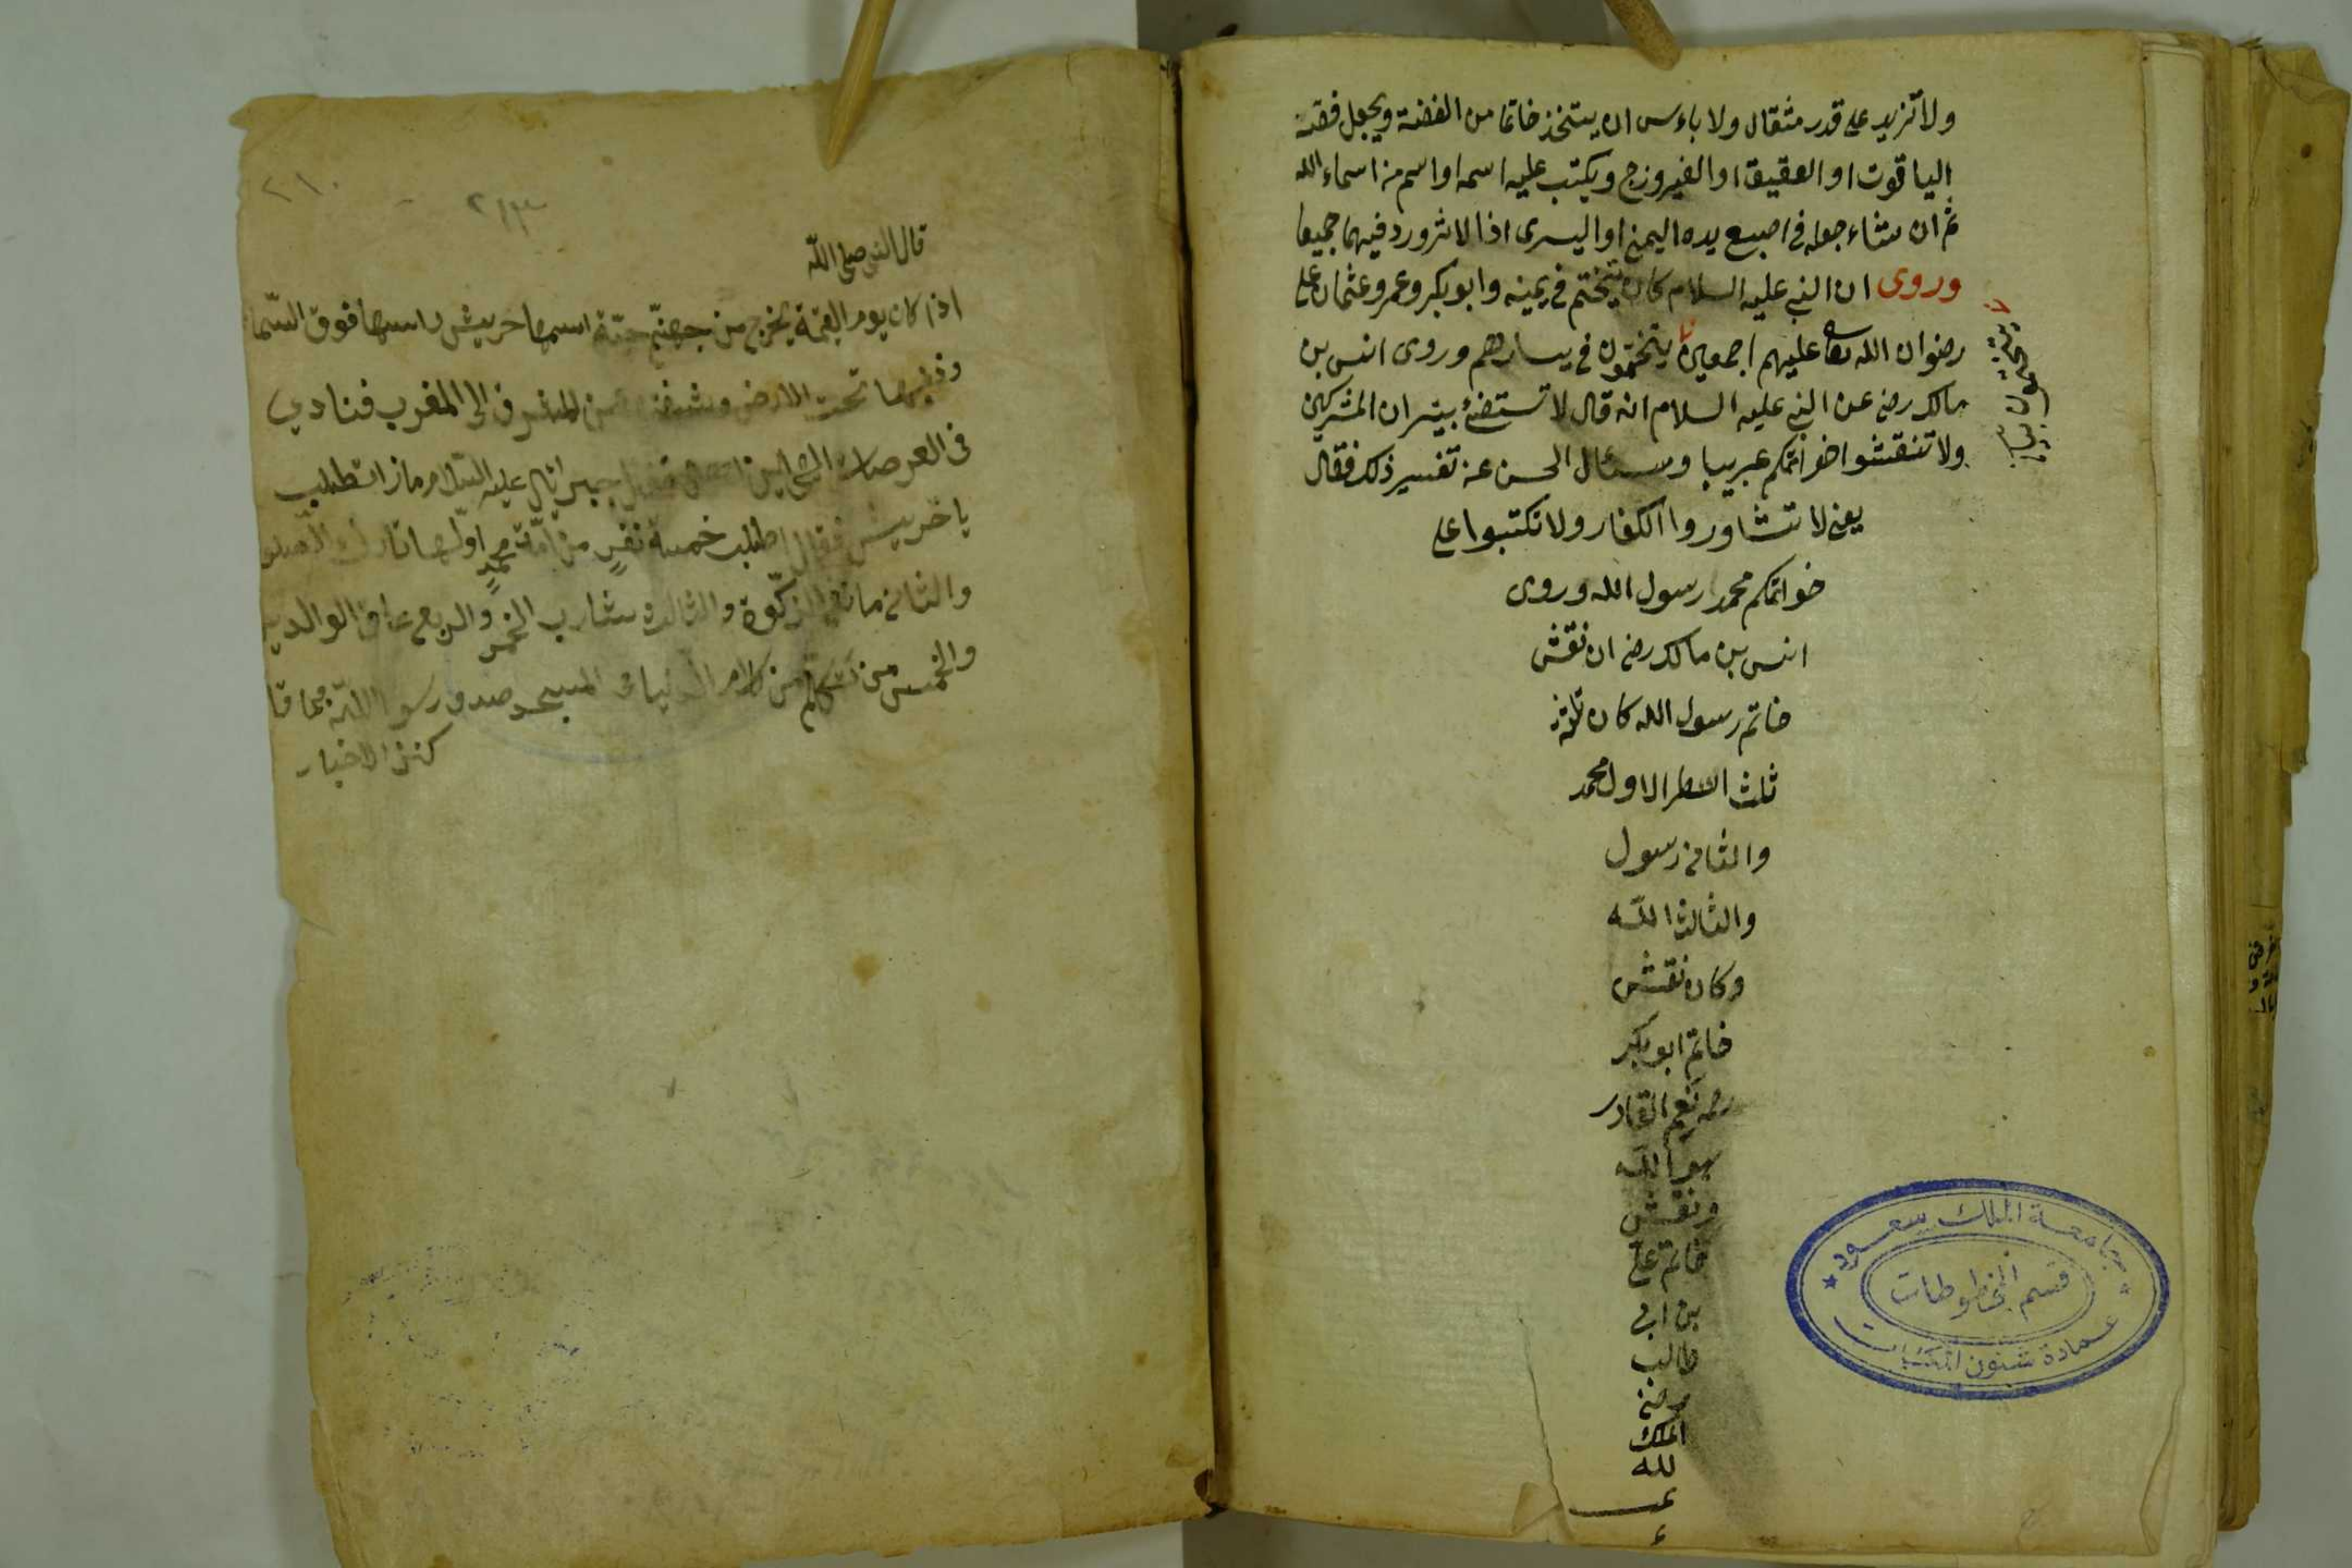 ولا تزيد على قدر مثقال ولا باءس ان يتخذ خاتما من الفضة ويجعل فصه
الياقوت او العقيق او الفيروزج ويكتب عليه اسمه او اسم من اسماء الله
ثم ان شاء جعله في اصبع يده اليمنى او اليسرى اذ الاثر ورد فيهما جميعا
وروى ان النبي عليه السلام كان يتختم في يمينه وابو بكر وعمر وعثمان وعلى
رضوان الله تعالى عليهم اجمعين يتختمون في يسارهم وروى انس بن
مالك رضى عن النبي عليه السلام انه قال لا تستضئ بنيران المشركين
ولا تنقشوا خواتمكم عربيا وسئال الحسن عن تفسير ذلك فقال
يعنى لا تشاوروا الكفار ولا تكتبوا على
خواتمكم محمد رسول الله وروى
انس بن مالك رضى ان نقش
خاتم رسول الله كان ثلاثة
ثلث اسطر الاول محمد
والثانى رسول
والثالث الله
وكان نقش
خاتم ابو بكر
رضه نعم القادر
هو الله
ونقش
خاتم على
بن ابى
طالب
رضى
الملك
لله
جامعة الملك سعود
قسم المخطوطات
عمادة شئون المكتبات
٢١٠
٢١٣
قال النبى صلى الله
اذا كان يوم القيمة يخرج من جهنم حية اسمها حريش راسها فوق السما
وذنبها تحت الارض وشفتها من المشرق الى المغرب فنادي
فى العرصات جبرائيل عليه السلام ماذا تطلب
يا خريش فقال اطلب خمسة نفر من امة محمد اولها تارك الصلو
والثانى مانع الزكوة والثالث شارب الخمر والربع عاق الوالدين
والخمس من تكلم من كلام الدنيا فى المسجد صدق رسول الله
كنز الاخبار